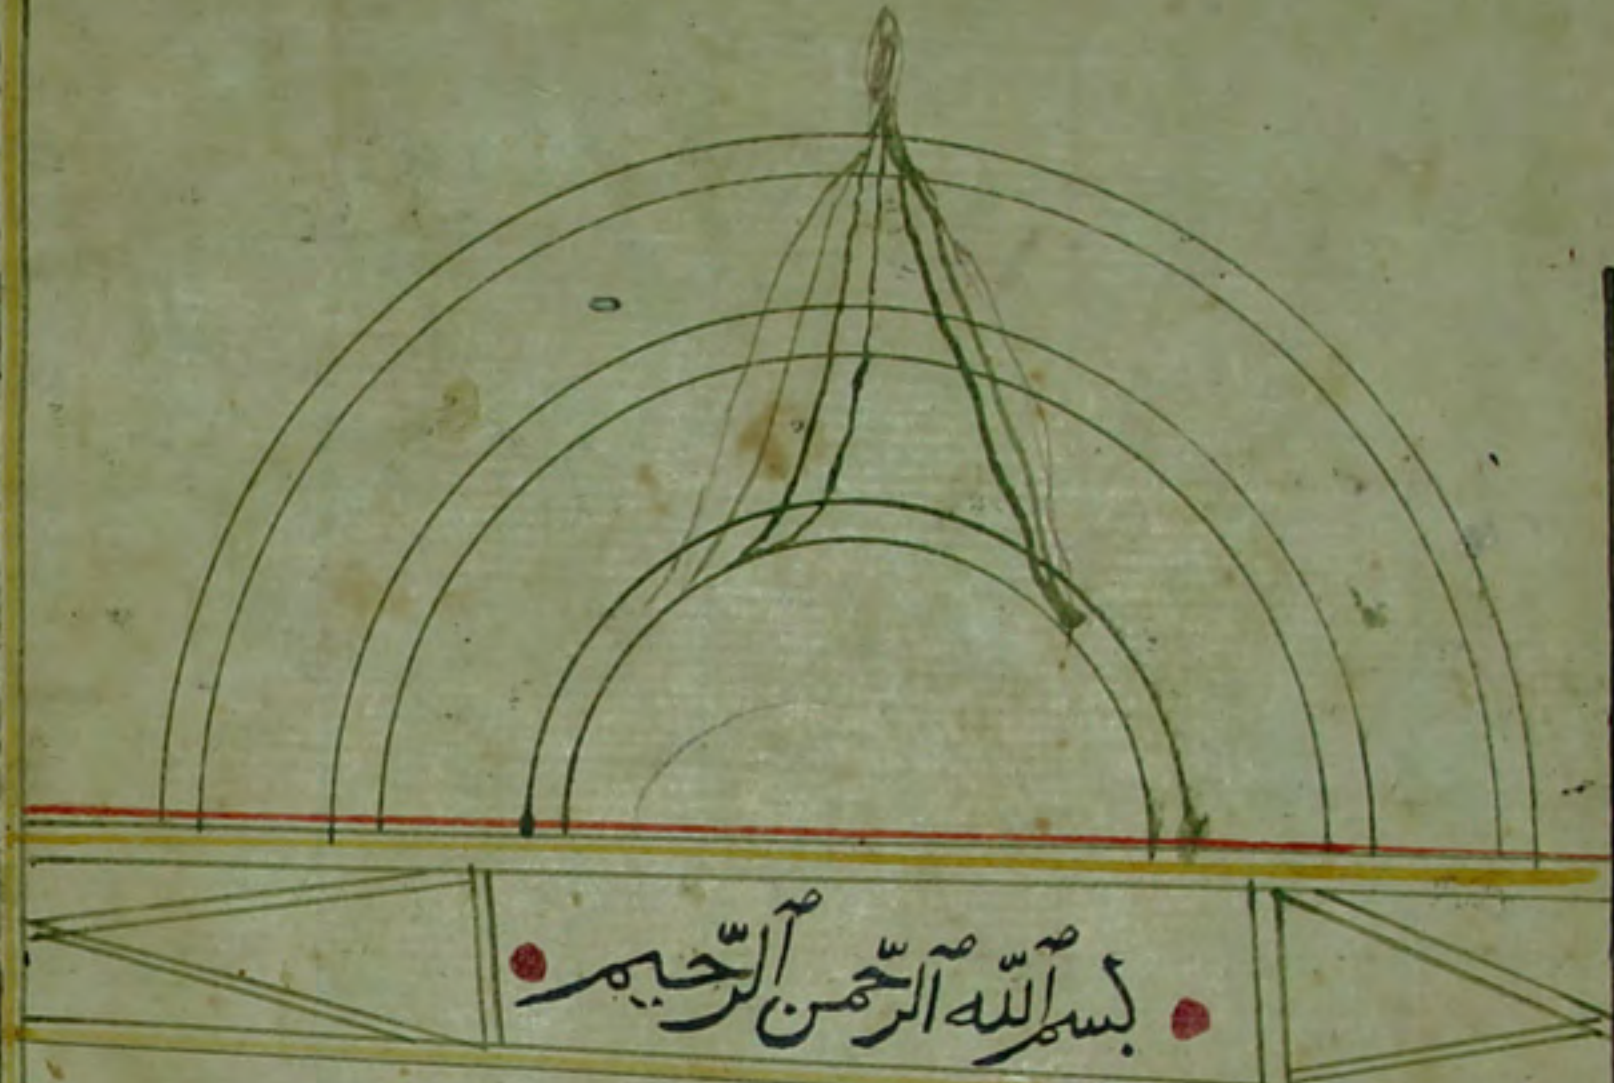 بسم ٱللّه ٱلرّحمن ٱلرّحيم